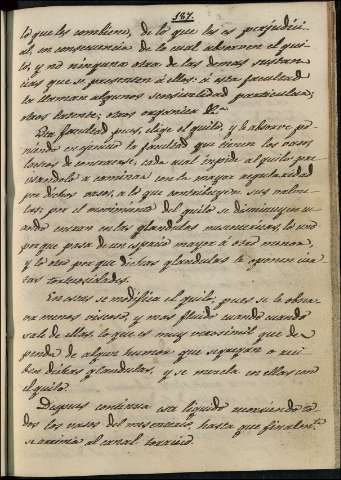 187.
lo que les combiene, de lo que les es perjudici-
al, en consecuencia de lo cual absorven el qui-
lo, y no ninguna otra de las demas sustan-
cias que se presenten á ellos: á esta facultad
la llaman algunos sensivilidad particular,
otros latente; otros organica &.a
Esta facultad pues, elige el quilo, y le absorve po-
niendo en egercicio la facultad que tienen los vasos
lacteos de contraerse; cada cual impide al quilo pre-
cisandole a caminar con la mayor regularidad
por dichos vasos, a lo que contribuyen sus valvu-
las; pero el movimiento del quilo se disminuye cu-
ando entran en las glandulas mesentericas; lo uno
porque pasa de un espacio mayor á otro menor,
y lo otro porque dichas glandulas le oponen cier-
tas tortuosidades.
En estas se modifica el quilo, pues se le obser-
va menos viscoso, y mas fluido cuando cuando
sale de ellas, lo que es muy verosimil que de-
penda de algun humor que segregan o reci-
ben dichas glandulas, y se mezcla en ellas con
el quilo.
Despues continua este liquido recorriendo to-
dos los vasos del mesenterio, hasta que finalm.te
se arriva al canal toracico.